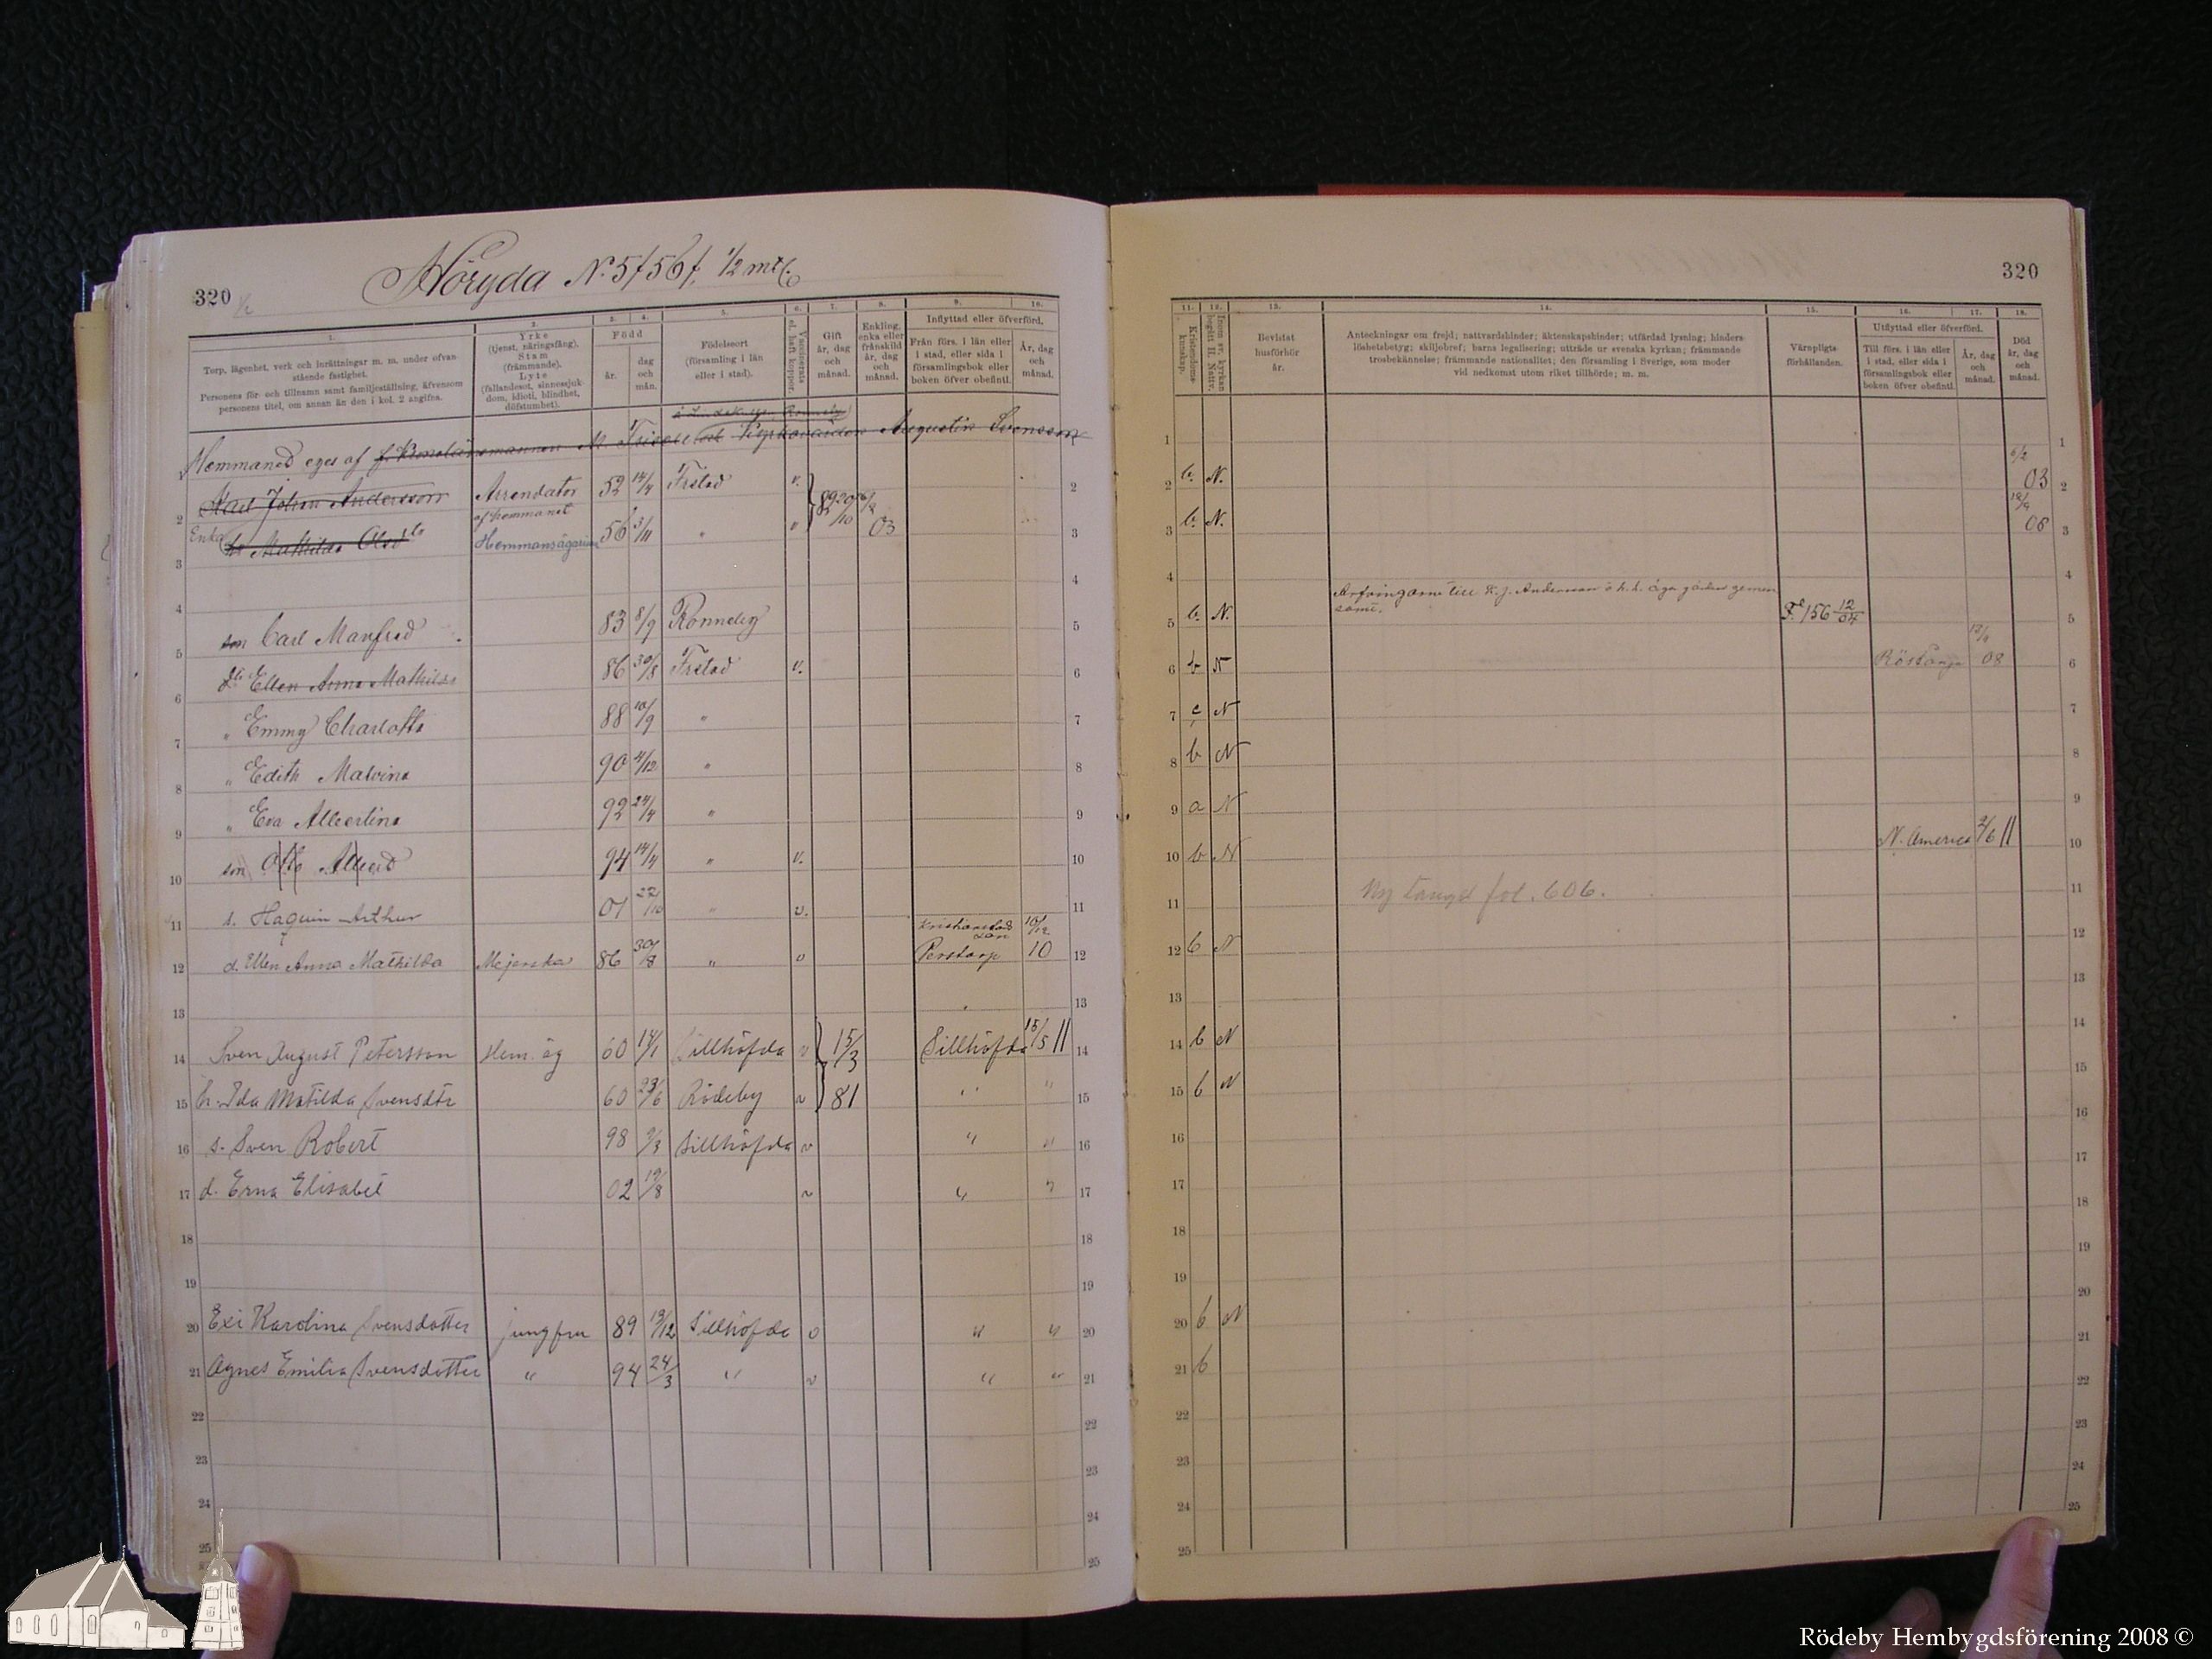 320 1/2 Höryda N:5/56/. 1/2 mtl.
1. 2. 3. 4. 5. 6. 7. 8. 9. 10.
Torp, lägenhet, verk och inrättningar m. m. under ofvanstående fastighet.
Personens för- och tillnamn samt familjeställning, äfvensom personens titel, om annan än den i kol. 2 angifna.
Yrke (tjenst, näringsfång). Stam (främmande). Lyte (fallandesot, sinnessjukdom, idioti, blindhet, döfstumhet).
Född
år. dag och mån.
Födelseort (församling i län eller i stad).
Vaccinerats el. haft koppor.
Gift år, dag och månad.
Enkling, enka eller frånskild år, dag och månad.
Inflyttad eller öfverförd.
Från förs. i län eller i stad, eller sida i församlingsbok eller boken öfver obefintl.
År, dag och månad.
1 Hemmanet eges af Augustin Svensson 1
2 Karl Johan Andersson Arrendator af hemmanet 52 14/4 Fristad v. 89 20/10 2
3 Enka Mathilda Hemmansägarinna 56 3/11 " " 03 3
4 4
5 son Carl Manfred 83 8/9 Ronneby 5
6 Ellen Anna Mathilda 86 30/8 Fristad v. 6
7 " Emmy Charlotta 88 10/9 " 7
8 " Edith Malvina 90 4/12 " 8
9 " Eva Albertina 92 24/4 " 9
10 son Otto Alfred 94 14/4 " v. 10
11 s. Haquin Arthur 01 22/10 " v. 11
12 d. Ellen Anna Mathilda Mejerska 86 30/8 " v Kristianstad län Perstorp 10/12 10 12
13 13
14 Sven August Petersson Hem. äg 60 14/1 Sillhöfda v 15/3 Sillhöfda 15/5 11 14
15 h. Ida Matilda Svensdtr 60 23/6 Rödeby v 81 " " 15
16 s. Sven Robert 98 9/3 Sillhöfda v " " 16
17 d. Erna Elisabet 02 19/8 v " " 17
18 18
19 19
20 Exi Karolina Svensdotter jungfru 89 13/12 Sillhöfda v " " 20
21 Agnes Emilia Svensdotter " 94 24/3 " v " " 21
22 22
23 23
24 24
25 25
320
11. 12. 13. 14. 15. 16. 17. 18.
Kristendomskunskap.
Inom sv. kyrkan begått H. Nattv.
Bevistat husförhör år.
Anteckningar om frejd; nattvardshinder; äktenskapshinder; utfärdad lysning; hinderslöshetsbetyg; skiljobref, barns legalisering; utträde ur svenska kyrkan; främmande trosbekännelse; främmande nationalitet; den församling i Sverige, som moder vid nedkomst utom riket tillhörde; m. m.
Värnpligtsförhållanden.
Utflyttad eller öfverförd.
Till förs. i län eller i stad, eller sida i församlingsbok eller boken öfver obefintl.
År, dag och månad.
Död år, dag och månad.
1 1
2 b. N. 6/2 03 2
3 b. N. 08 3
4 4
5 b. N. Arfvingarne till K. J. Andersson o h. h. äga gården gemensamt. 156 12/04 5
6 b N Röstånga 08 6
7 c N 7
8 b N 8
9 a N 9
10 b N N. America 2/6 11 10
11 Ny längd fol. 606. 11
12 b N 12
13 13
14 b N 14
15 b N 15
16 16
17 17
18 18
19 19
20 b N 20
21 b 21
22 22
23 23
24 24
25 25
Rödeby Hembygdsförening 2008 ©